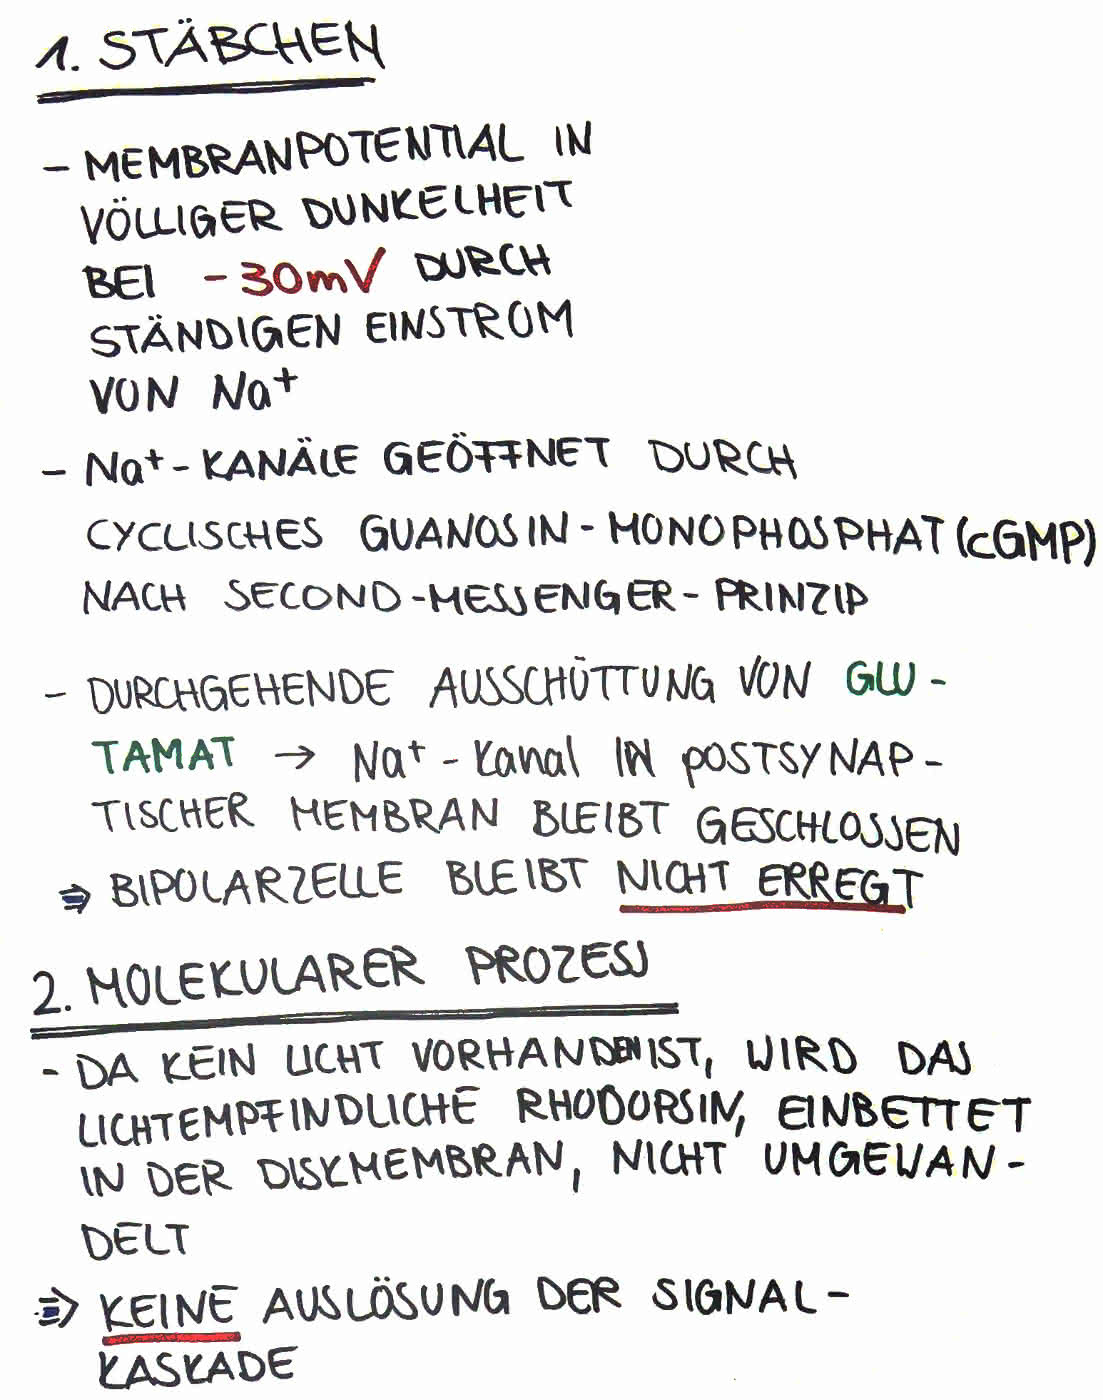 1. STÄBCHEN
- MEMBRANPOTENTIAL IN
VÖLLIGER DUNKELHEIT
BEI -30mV DURCH
STÄNDIGEN EINSTROM
VON Na+
- Na+-KANÄLE GEÖFFNET DURCH
CYCLISCHES GUANOSIN-MONOPHOSPHAT (cGMP)
NACH SECOND-MESSENGER-PRINZIP
- DURCHGEHENDE AUSSCHÜTTUNG VON GLU-
TAMAT → Na+-Kanal IN POSTSYNAP-
TISCHER MEMBRAN BLEIBT GESCHLOSSEN
⇒ BIPOLARZELLE BLEIBT NICHT ERREGT
2. MOLEKULARER PROZESS
- DA KEIN LICHT VORHANDEN IST, WIRD DAS
LICHTEMPFINDLICHE RHODOPSIN, EINBETTET
IN DER DISKMEMBRAN, NICHT UMGEWAN-
DELT
⇒ KEINE AUSLÖSUNG DER SIGNAL-
KASKADE